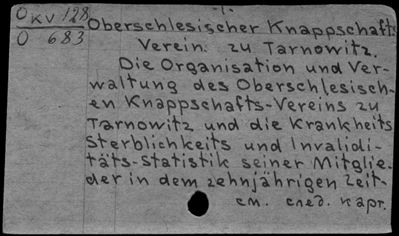 -1-
OKV 128
O 683
Oberschlesischer Knappschafts
Verein. zu Tarnowitz.
Die Organisation und Ver-
waltung des Oberschlesisch-
en Knappschafts-Vereins zu
Tarnowitz und die Krankheits
Sterblichkeits und Invalidi-
täts-Statistik seiner Mitglie-
der in dem zehnjährigen Zeit-
см. след. карт.